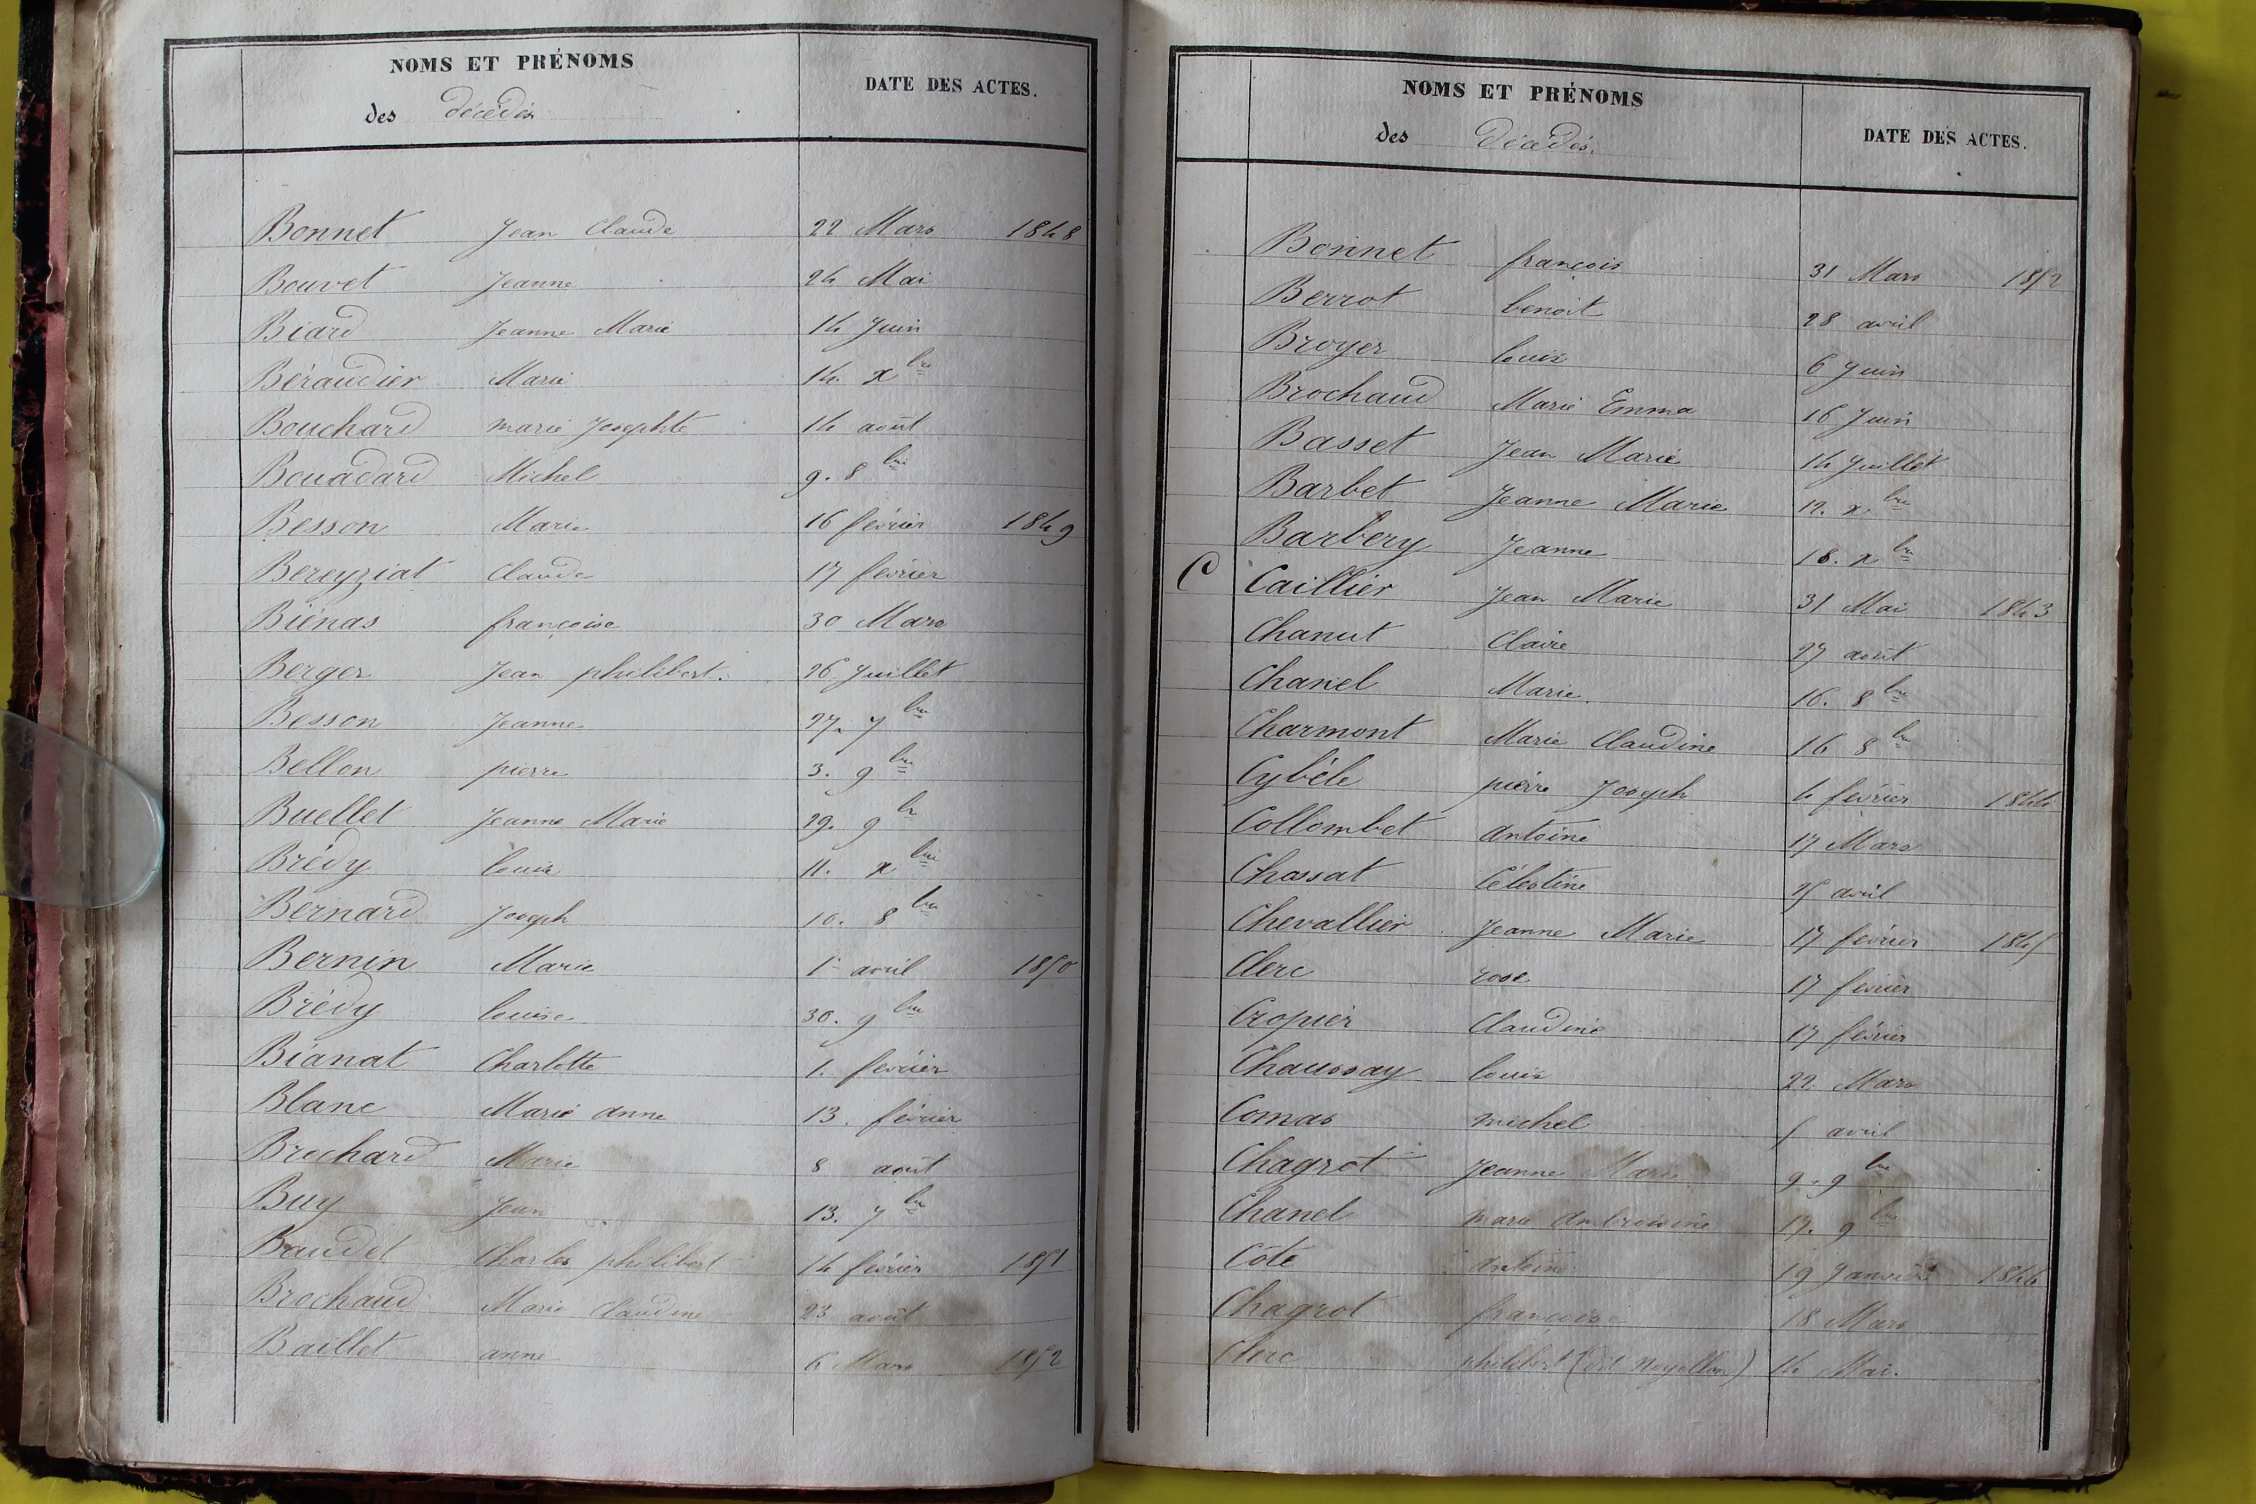 NOMS ET PRÉNOMS
des décédés
DATE DES ACTES.
Bonnet Jean Claude 22 Mars 1848
Bouvet Jeanne 24 Mai
Biard Jeanne Marie 14 Juin
Béraudier Marie 14. x bre
Bouchard marie Josephte 14 août
Bouadard Michel 9. 8 bre
Besson Marie 16 février 1849
Bereyziat Claude 17 février
Biénas françoise 30 Mars
Berger Jean philibert. 26 Juillet
Besson Jeanne 27. 7 bre
Bellon pierre 3. 9 bre
Buellet Jeanne Marie 29. 9 br
Brédy louis 11. x bre
Bernard Joseph 10. 8 bre
Bernin Marie 1er avril 1850
Brédy louise 30. 9 bre
Bianat Charlotte 1. février
Blanc Marie anne 13. février
Brochard Marie 8 août
Buy Jean 13. 7 bre
Baudet Charles philibert 14 février 1851
Brochaud Marie Claudine 23 août
Baillet anne 6 Mars 1852
NOMS ET PRÉNOMS
des Décédés.
DATE DES ACTES.
Bonnet françois 31 Mars 1852
Berrot benoit 28 avril
Broyer louis 6 Juin
Brochaud Marie Emma 16 Juin
Basset Jean Marie 14 Juillet
Barbet Jeanne Marie 12. x. bre
Barbery Jeanne 18. x bre
C Caillier Jean Marie 31 Mai 1843
Chanut Claire 27 août
Chanel Marie. 16. 8 bre
Charmont Marie Claudine 16 8 bre
Cybéle pierre Joseph 4 février 1844
Collombet antoine 17 Mars
Chassat Célestine 25 avril
Chevallier Jeanne Marie 17 février 1845
Clerc rose 17 février
Cropier Claudine 17 février
Chaussay louis 22 Mars
Comas michel 5 avril
Chagrot Jeanne Marie 9. 9 bre
Chanel marie ambroisine 17. 9 bre
Côte antoine 19 Janvier 1846
Chagrot françoise 18 Mars
Clerc philibert (dit Noyellon) 14 Mai.